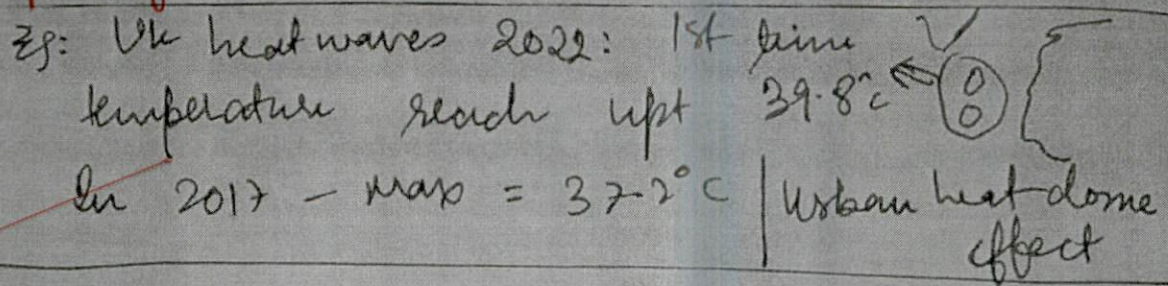 Eg: Uk heat waves 2022: 1st time
temperature reach upt 39.8°c
In 2017 - max = 37.2°C | Urban heat dome
effect